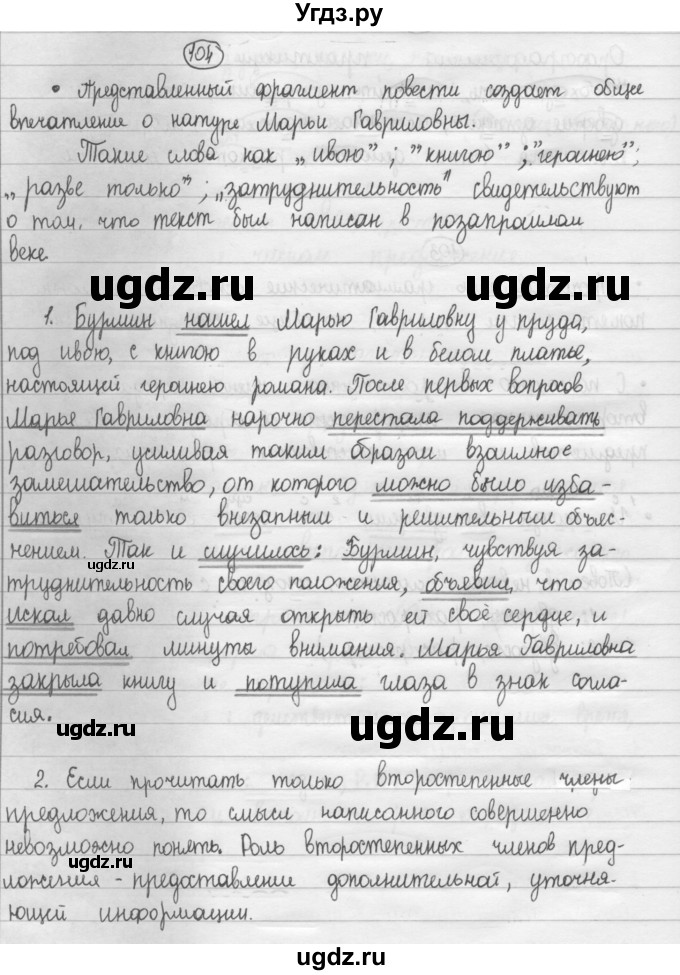 Угдз.ру
104
• Представленный фрагмент повести создает общее
впечатление о натуре Марьи Гавриловны.
Такие слова как „ивою”; ”книгою”; ”героинею”;
„разве только”; „затруднительность” свидетельствуют
о том, что текст был написан в позапрошлом
веке
ugdz.ru ugdz.ru
1. Бурмин нашел Марью Гавриловну у пруда,
под ивою, с книгою в руках и в белом платье,
настоящей героинею романа. После первых вопросов
Марья Гавриловна нарочно перестала поддерживать
разговор, усиливая таким образом взаимное
замешательство, от которого можно было изба-
виться только внезапным и решительным объяс-
нением. Так и случилось: Бурмин, чувствуя за-
ugdz.ru
труднительность своего положения, объявил, что
искал давно случая открыть ей своё сердце, и
потребовал минуты внимания. Марья Гавриловна
закрыла книгу и потупила глаза в знак согла-
сия.
ugdz.ru ugdz.ru
2. Если прочитать только второстепенные члены
предложения, то смысл написанного совершенно
невозможно понять. Роль второстепенных членов пред-
ugdz.ru
ложения - предоставление дополнительной, уточня-
ющей информации.
ugdz.ru